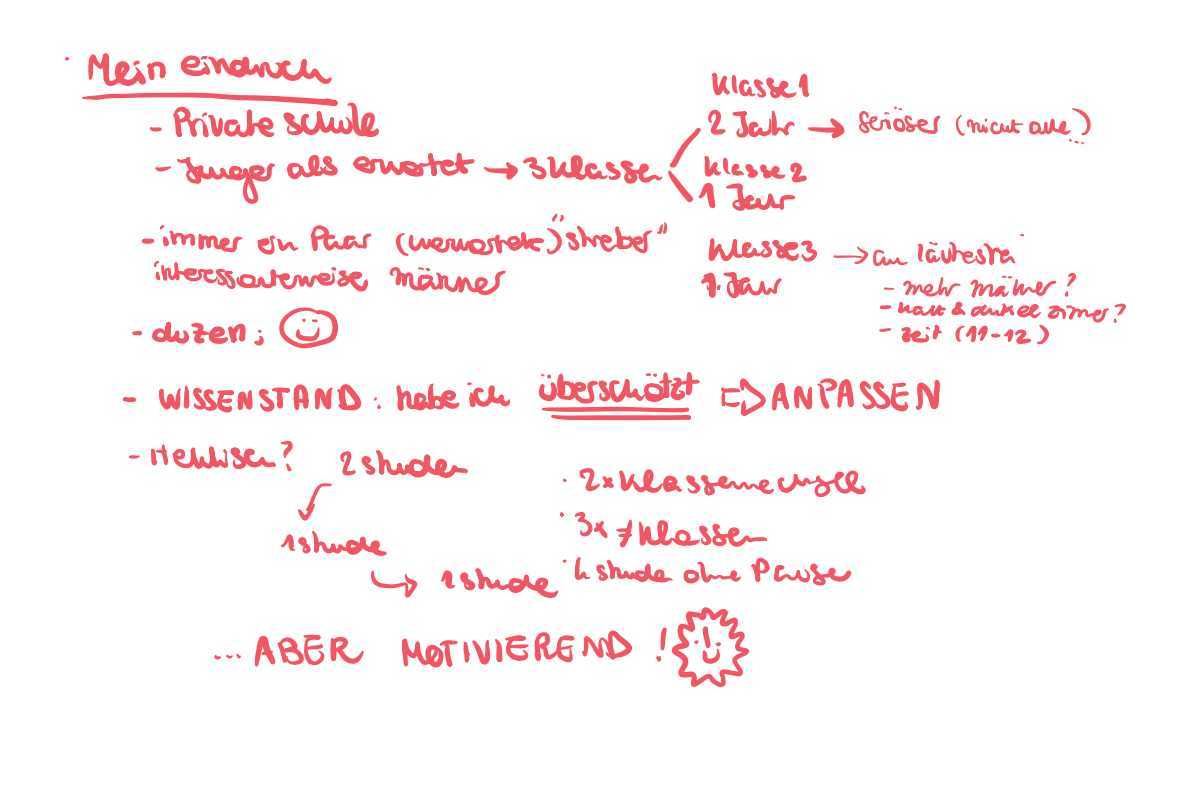 Mein eindruck
- Private schule
- Junger als erwartet → 3 Klassen
Klasse 1
2 Jahr → seriöser (nicut alle)
...
Klasse 2
1 Jahr
- immer ein Paar (unerwartete) "streber"
interessanterweise männer
Klasse 3 → am läutesten
1. Jahr
- mehr mäner?
- kalt & dunkel zimer?
- zeit (11-12)
- duzen ;
- WISSENSTAND : habe ich überschätzt ⇒ ANPASSEN
- Hektisch?
2 stunden
1 stunde
1 stunde
· 2x Klassenwechsel
· 3x ≠ Klassen
· 4 stunde ohne Pause
... ABER MOTIVIEREND !